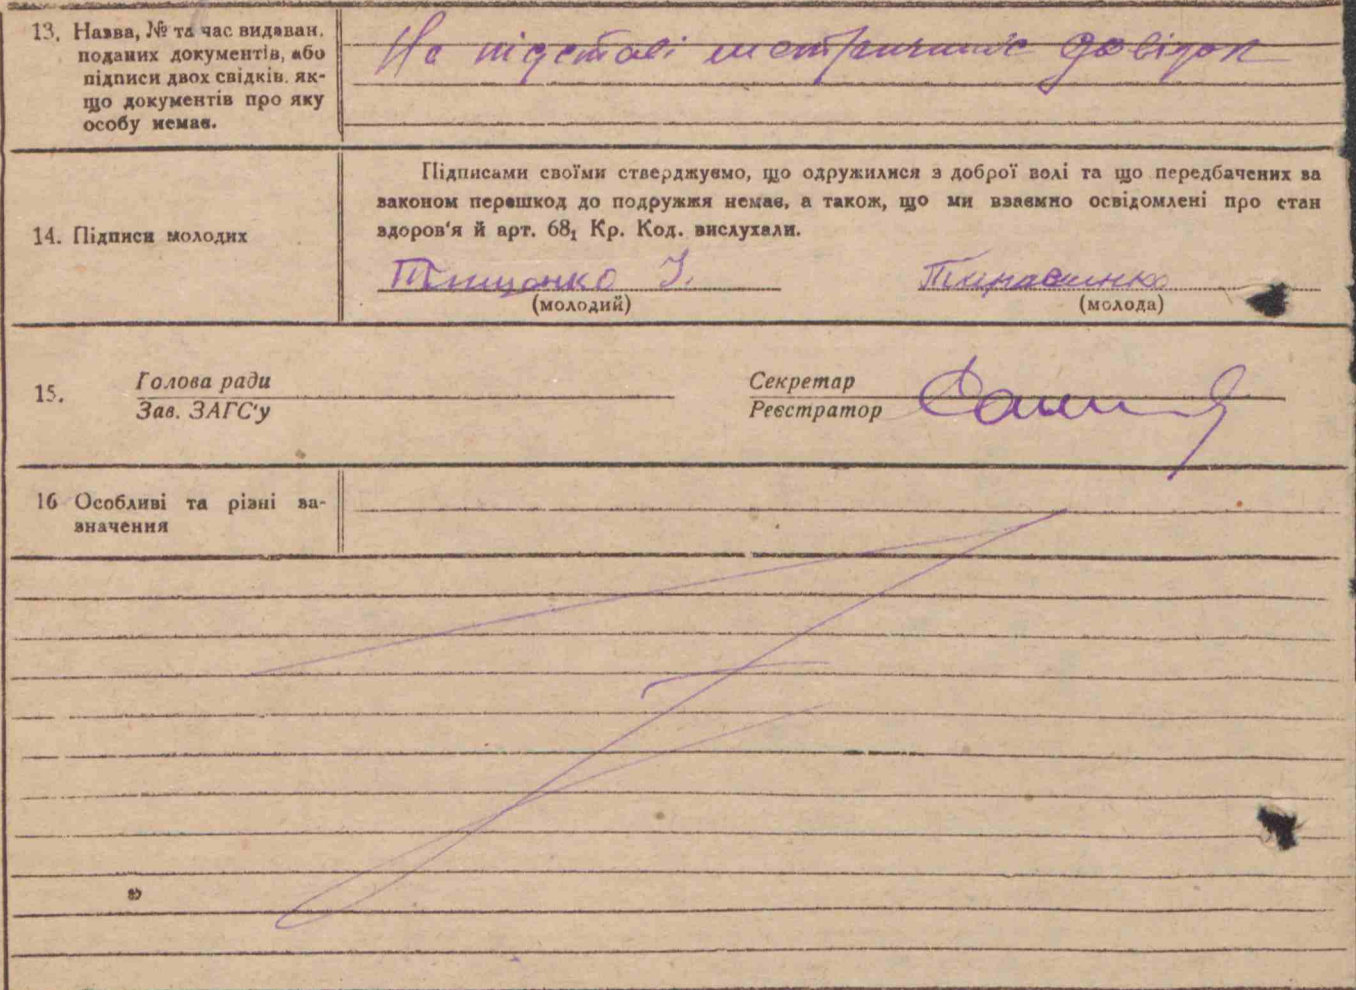 13. Назва, № та час видаван.
поданих документів, або
підписи двох свідків, як-
що документів про яку
особу немає.
На підставі метричних довідок
14. Підписи молодих
Підписами своїми стверджуємо, що одружилися з доброї волі та що передбачених за
законом перешкод до подружжя немає, а також, що ми взаємно освідомлені про стан
здоров'я й арт. 68₁ Кр. Код. вислухали.
Тищенко І.
(молодий)
Тарасинко
(молода)
15.
Голова ради
Зав. ЗАГС'у
Секретар
Реєстратор
16 Особливі та різні за-
значення